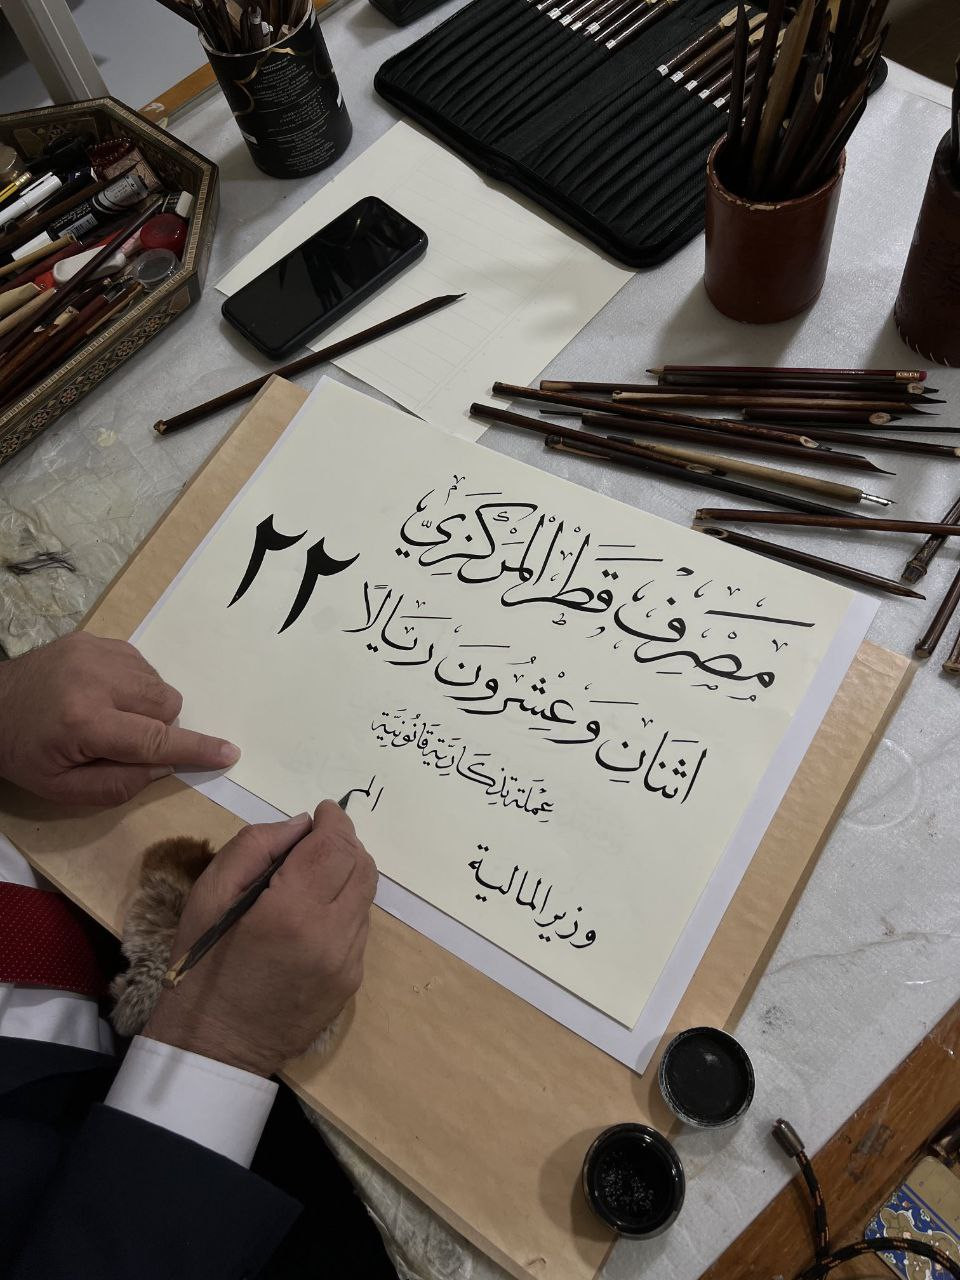 مَصْرَف قَطَر المَرْكَزِيّ
اثْنَانِ وَعِشْرُونَ رِيَالًا ٢٢
عُمْلَة تِذْكَارِيَّة قَانُونِيَّة
وزير المالية
الم